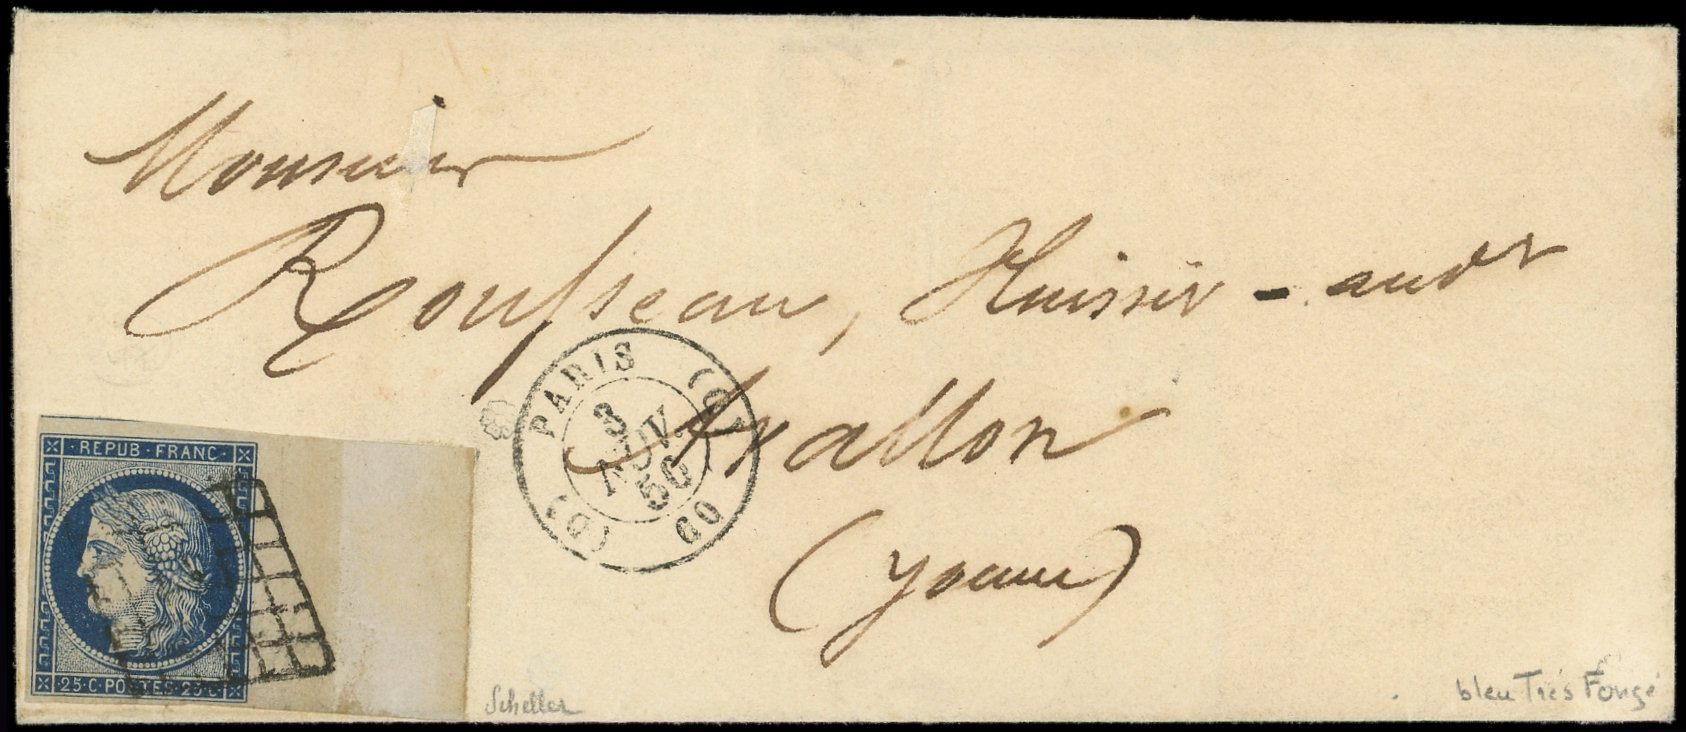 Monsieur
Rousseau, Huissier - audr
Avallon
(Yonne)
PARIS
3
NOV.
50
60
REPUB·FRANC·
25·C·POSTES·25·C
Scheller
bleu Très Foncé